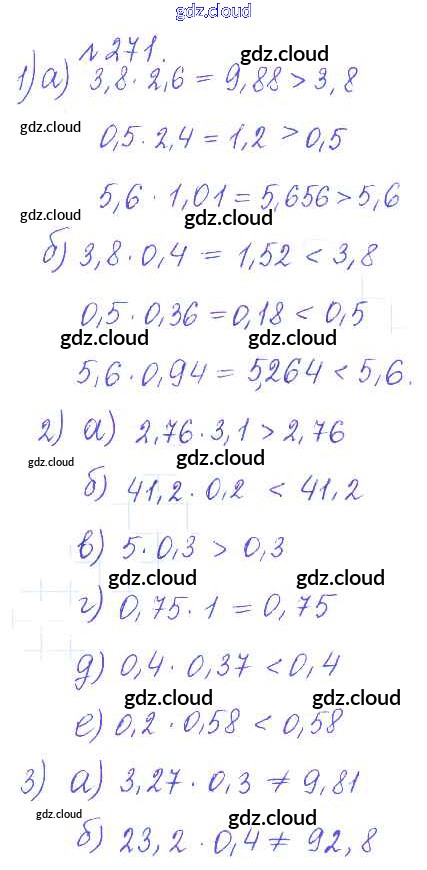 gdz.cloud
№271.
gdz.cloud
1) а) 3,8 · 2,6 = 9,88 > 3,8
gdz.cloud
0,5 · 2,4 = 1,2 > 0,5
5,6 · 1,01 = 5,656 > 5,6
gdz.cloud gdz.cloud
б) 3,8 · 0,4 = 1,52 < 3,8
0,5 · 0,36 = 0,18 < 0,5
gdz.cloud gdz.cloud
5,6 · 0,94 = 5,264 < 5,6.
2) а) 2,76 · 3,1 > 2,76
gdz.cloud gdz.cloud
б) 41,2 · 0,2 < 41,2
в) 5 · 0,3 > 0,3
gdz.cloud gdz.cloud
г) 0,75 · 1 = 0,75
д) 0,4 · 0,37 < 0,4
gdz.cloud gdz.cloud
е) 0,2 · 0,58 < 0,58
3) а) 3,27 · 0,3 ≠ 9,81
gdz.cloud gdz.cloud
б) 23,2 · 0,4 ≠ 92,8